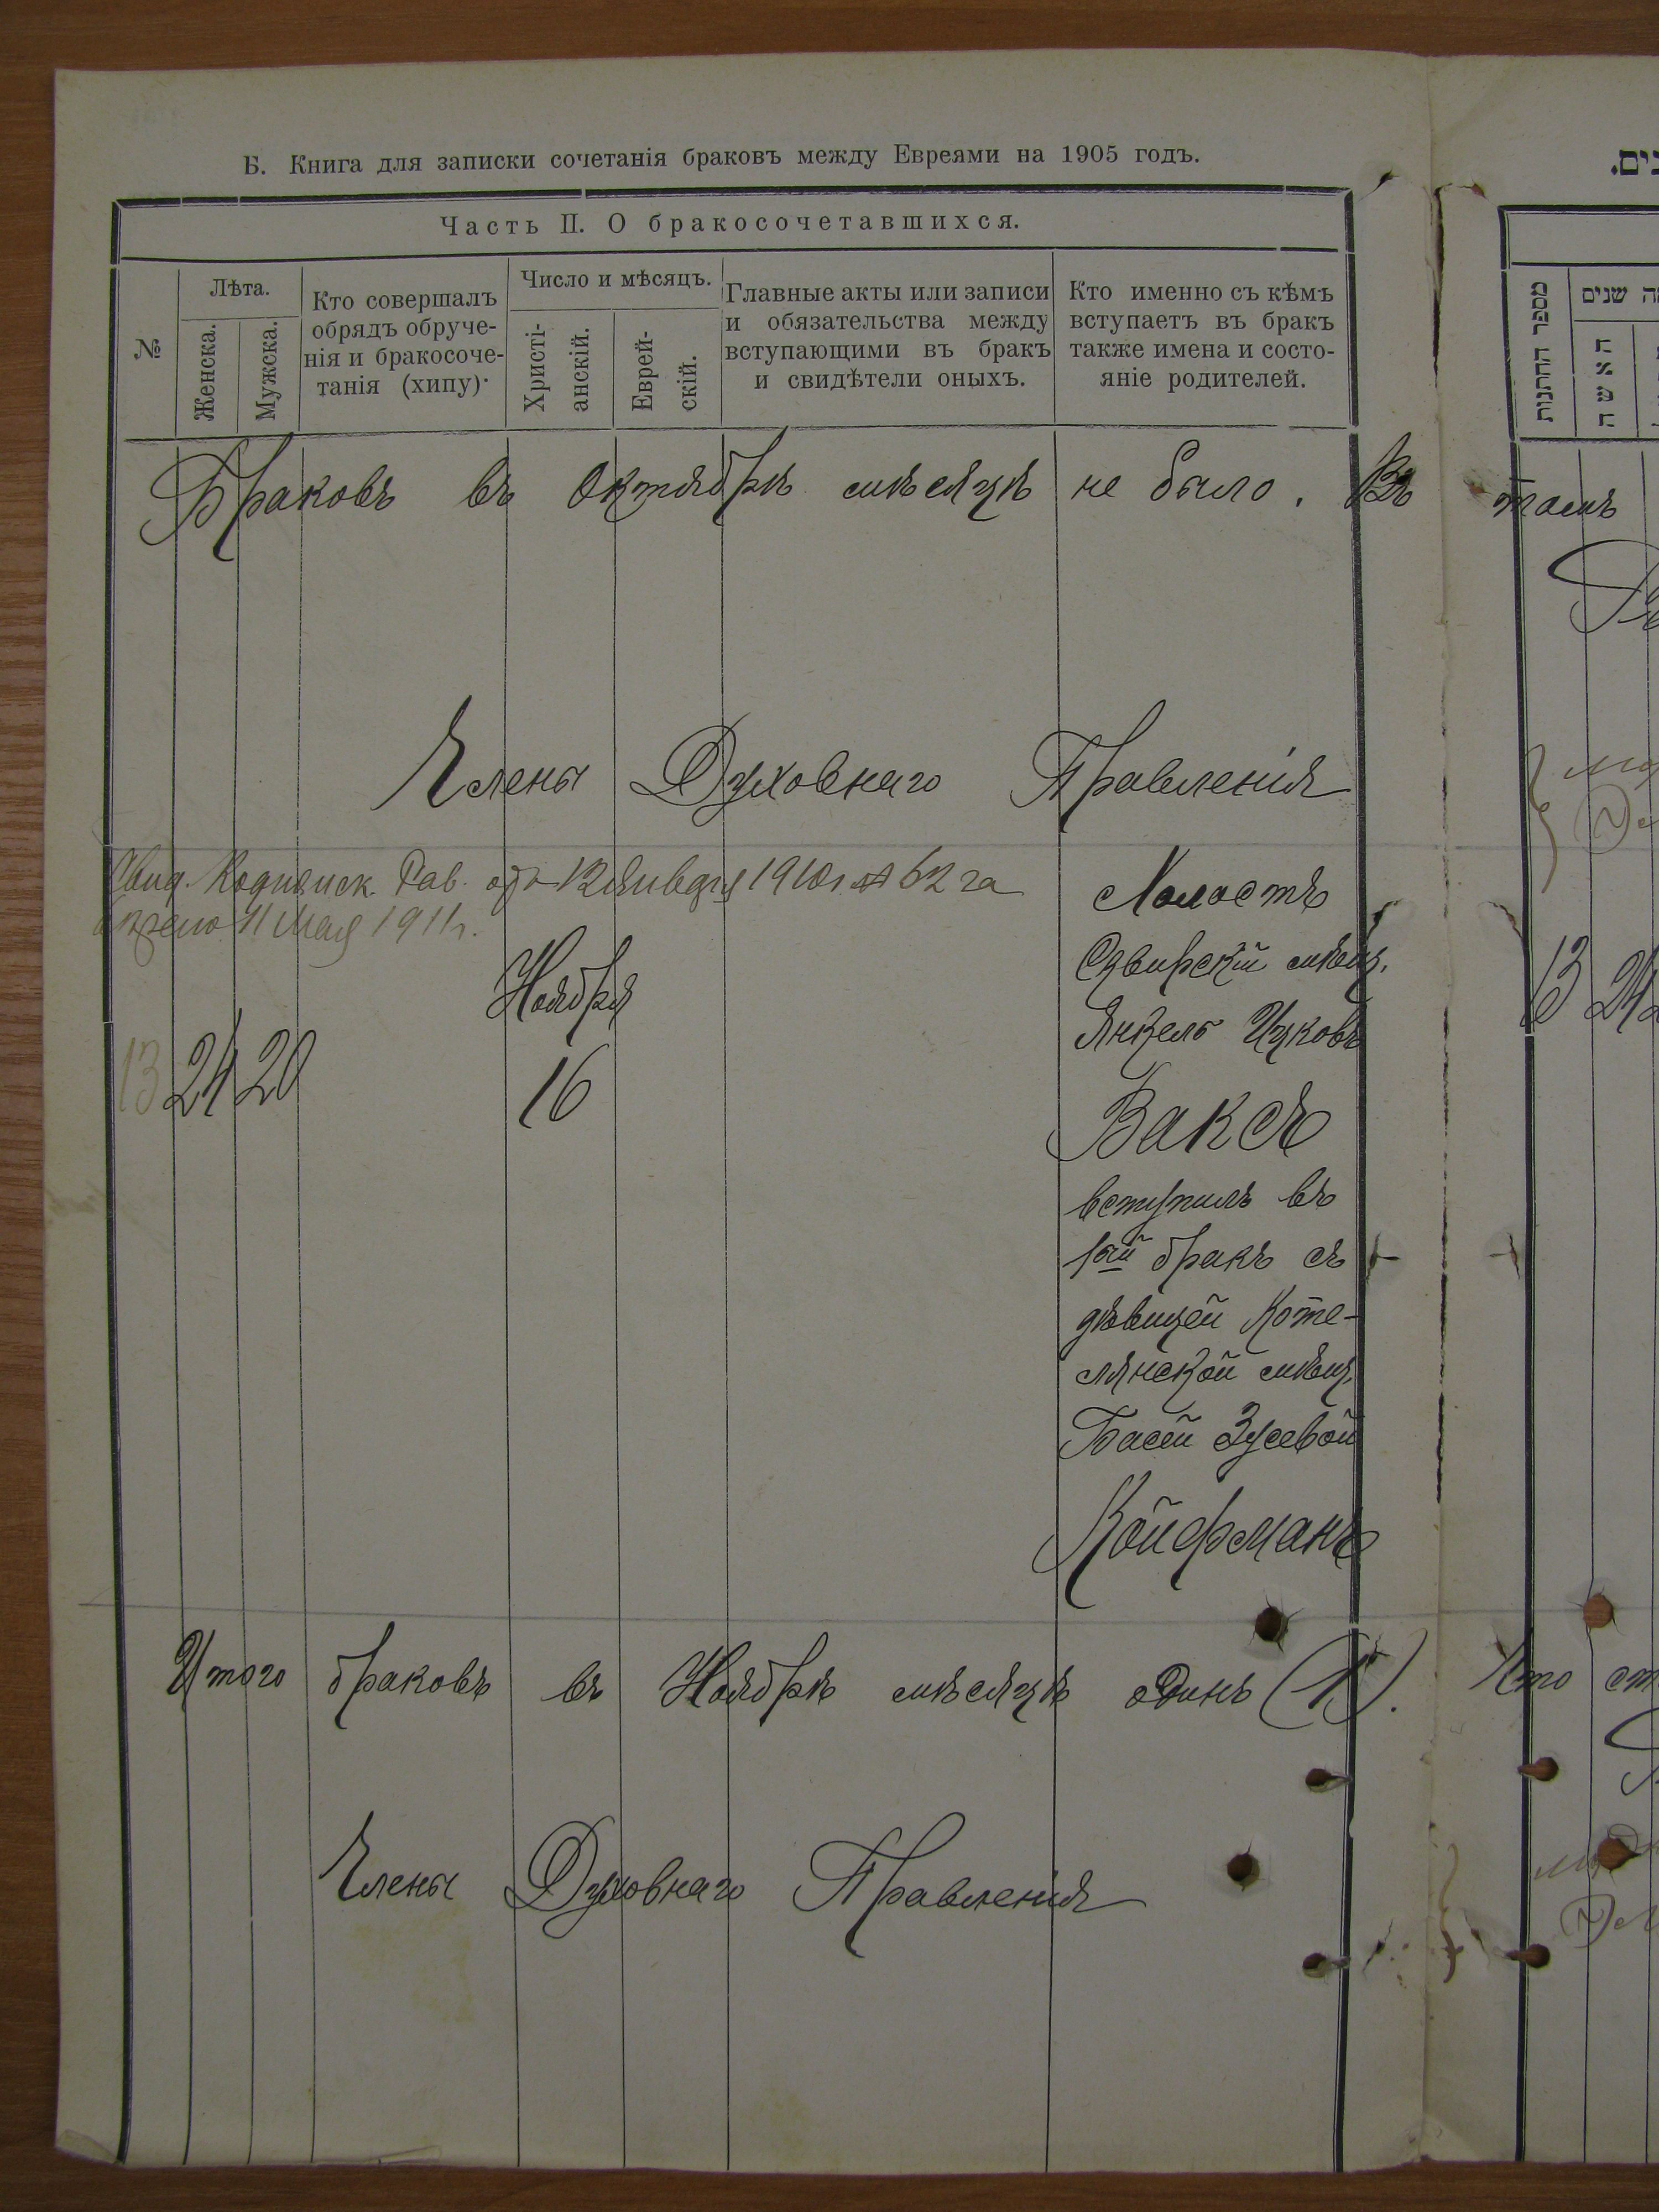 Б. Книга для записки сочетанія браковъ между Евреями на 1905 годъ.
Часть II. О бракосочетавшихся.
№
Лѣта.
Женска.
Мужска.
Кто совершалъ
обрядъ обруче-
нія и бракосоче-
танія (хипу)
Число и мѣсяцъ.
Христі-
анскій.
Еврей-
скій.
Главные акты или записи
и обязательства между
вступающими въ бракъ
и свидѣтели оныхъ.
Кто именно съ кѣмъ
вступаетъ въ бракъ
также имена и состо-
яніе родителей.
מספר החתונות
שנים
האשה
Браковъ въ Октябрѣ мѣсяцѣ не было. Въ томъ
Члены Духовнаго Правленія
Рав. 12 Января 1910 г. № 62
11 Мая 1911 г.
Холостъ
Сквирскій мѣщ.
Янкель Ицковъ
Ваксъ
вступилъ въ
1ый бракъ съ
дѣвицей Коте-
лянской мѣщ.
Басей Зусевой
Койфманъ
Ноября
13 24 20 16
13 24
Итого браковъ въ Ноябрѣ мѣсяцѣ одинъ (1). Что
Члены Духовнаго Правленія